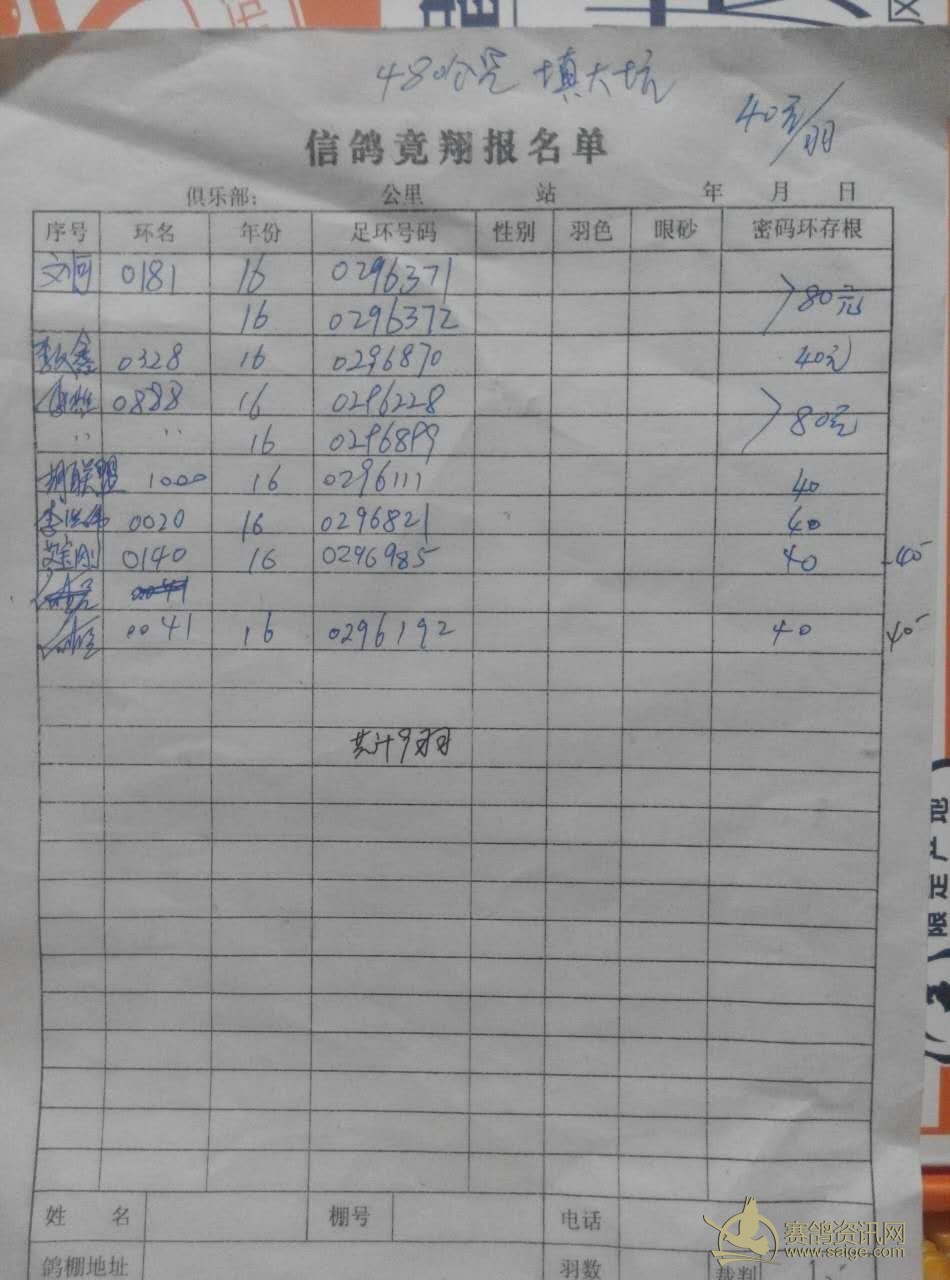 480公里 填大坑
40元/羽
信鸽竟翔报名单
俱乐部: 公里 站 年 月 日
序号 环名 年份 足环号码 性别 羽色 眼砂 密码环存根
0181 16 0296371
16 0296372
>80元
0328 16 0296870 40元
0888 16 0296228
〃 〃 16 0296899
>80元
胡联盟 1000 16 0296111 40
0020 16 0296821 40
0140 16 0296985 40 40
0041
0041 16 0296192 40 40
共计9羽
姓 名 棚号 电话
鸽棚地址 羽数 裁判
限定产地
赛鸽资讯网
www.saige.com